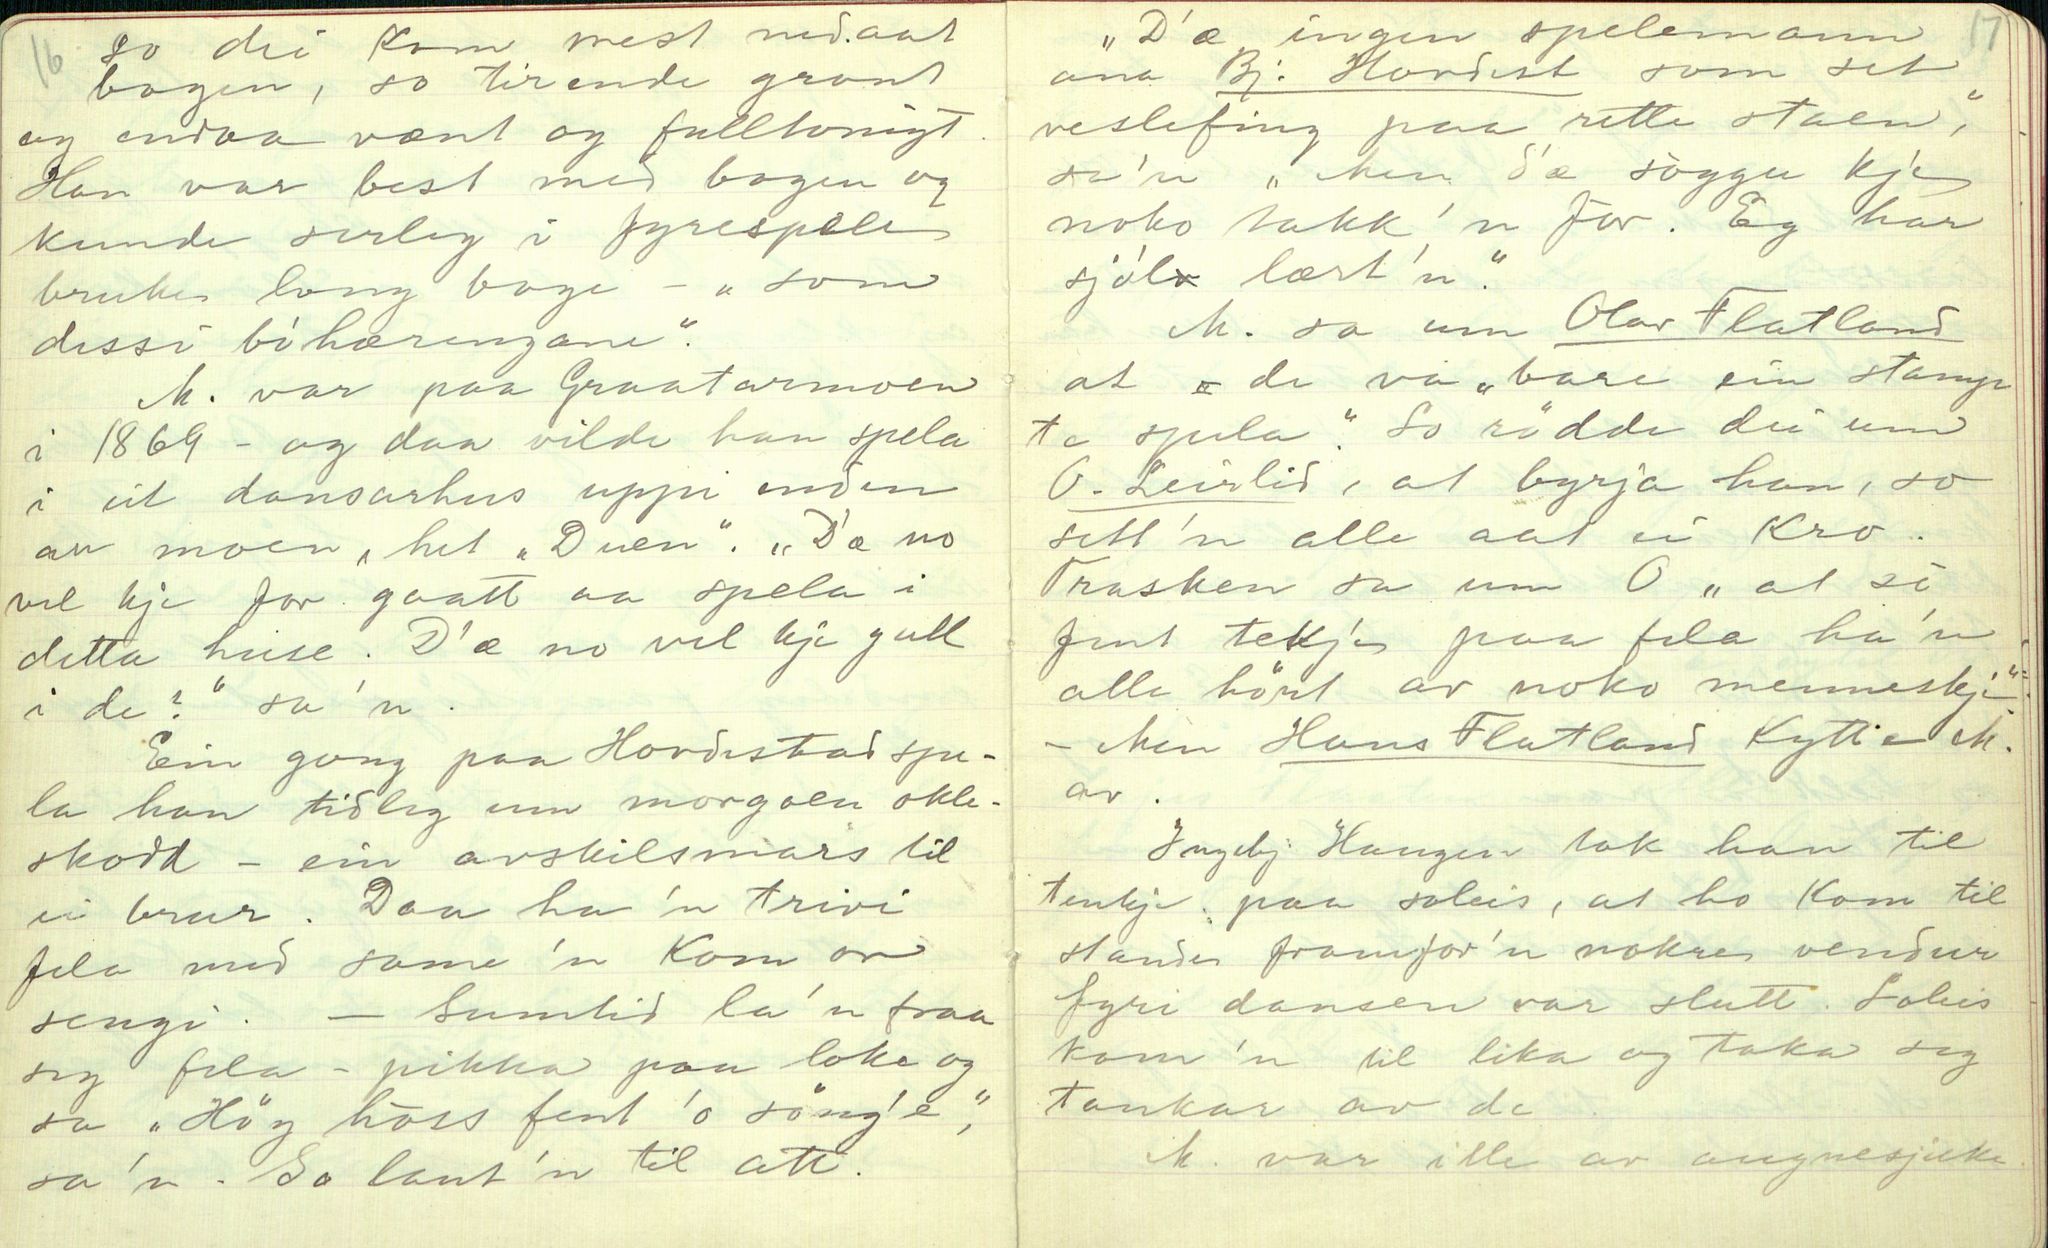 16
so dei kom mest nedaat
bogen, so tirende grant
og endaa vænt og fulltonigt.
Han var best med bogen og
kunde serleg i fyrespele
bruke lang boge – „som
dessi böhæringane“.
M. var paa Graatarmoen
i 1869 – og daa vilde han spela
i eit dansarhus uppi enden
au moen, het „Duen“. „D'æ no
vel kje for gaatt aa spela i
detta huse. D'æ no vel kje gull
i de?“ sa'n.
Ein gong paa Hovdestad spe-
la han tidleg um morgoen okle-
skodd – ein avskilsmars til
ei brur. Daa ha'n trivi
fela med same 'n kom or
sengi. – Sumtid la'n fraa
seg fela – pikka paa loke og
sa „Höy höss fent 'o söng'e“,
sa'n. So laut'n til att.
17
„D'æ ingen spelemann
ana Bj. Hovdest som set
veslefing paa rette staen“,
sa'n „Men d'æ söggu kje
noko takk'n for. Eg har
sjölv lært'n“.
M. sa um Olav Flatland
at de va „bare ein stamp
te spela“. So rödde dei um
O. Leirlid, at byrja han, so
sett'n alle aat ei kro.
Frasken sa um O „at so
fent tekje paa fela ha'n
alle hört av noko menneskje“
– Men Hans Flatland kytte M.
av.
Ingebj Haugen tok han til
tenkje paa soleis, at ho kom til
standes framfor'n nokre vendur
fyri dansen var slutt. Soleis
kom'n til lika og taka seg
tankar av de
M. var ille av augnesjuke